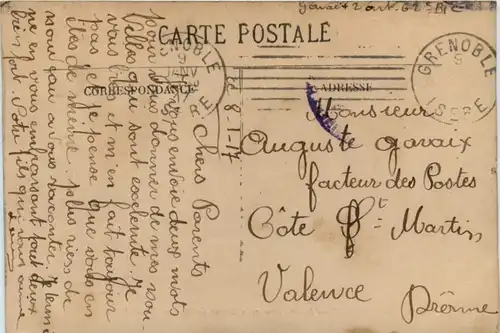 Gavaix 2
CARTE POSTALE
GRENOBLE
JANV
CORRESPONDANCE
ADRESSE
GRENOBLE
ISERE
le 8-1-17
Chers Parents
Je vous envoie deux mots
pour vous donner de mes nou-
velles qui sont excelente. Je
vous lis et m'en fait toujour
pas je pense que vous en
êtes de meme plus rien de
nouveau a vous raconter. Je term
ne en vous embrassant tout deux
bien fort. Votre fils qui vous aime
Monsieur
Auguste Gavaix
facteur des Postes
Côte St Martin
Valence Drôme